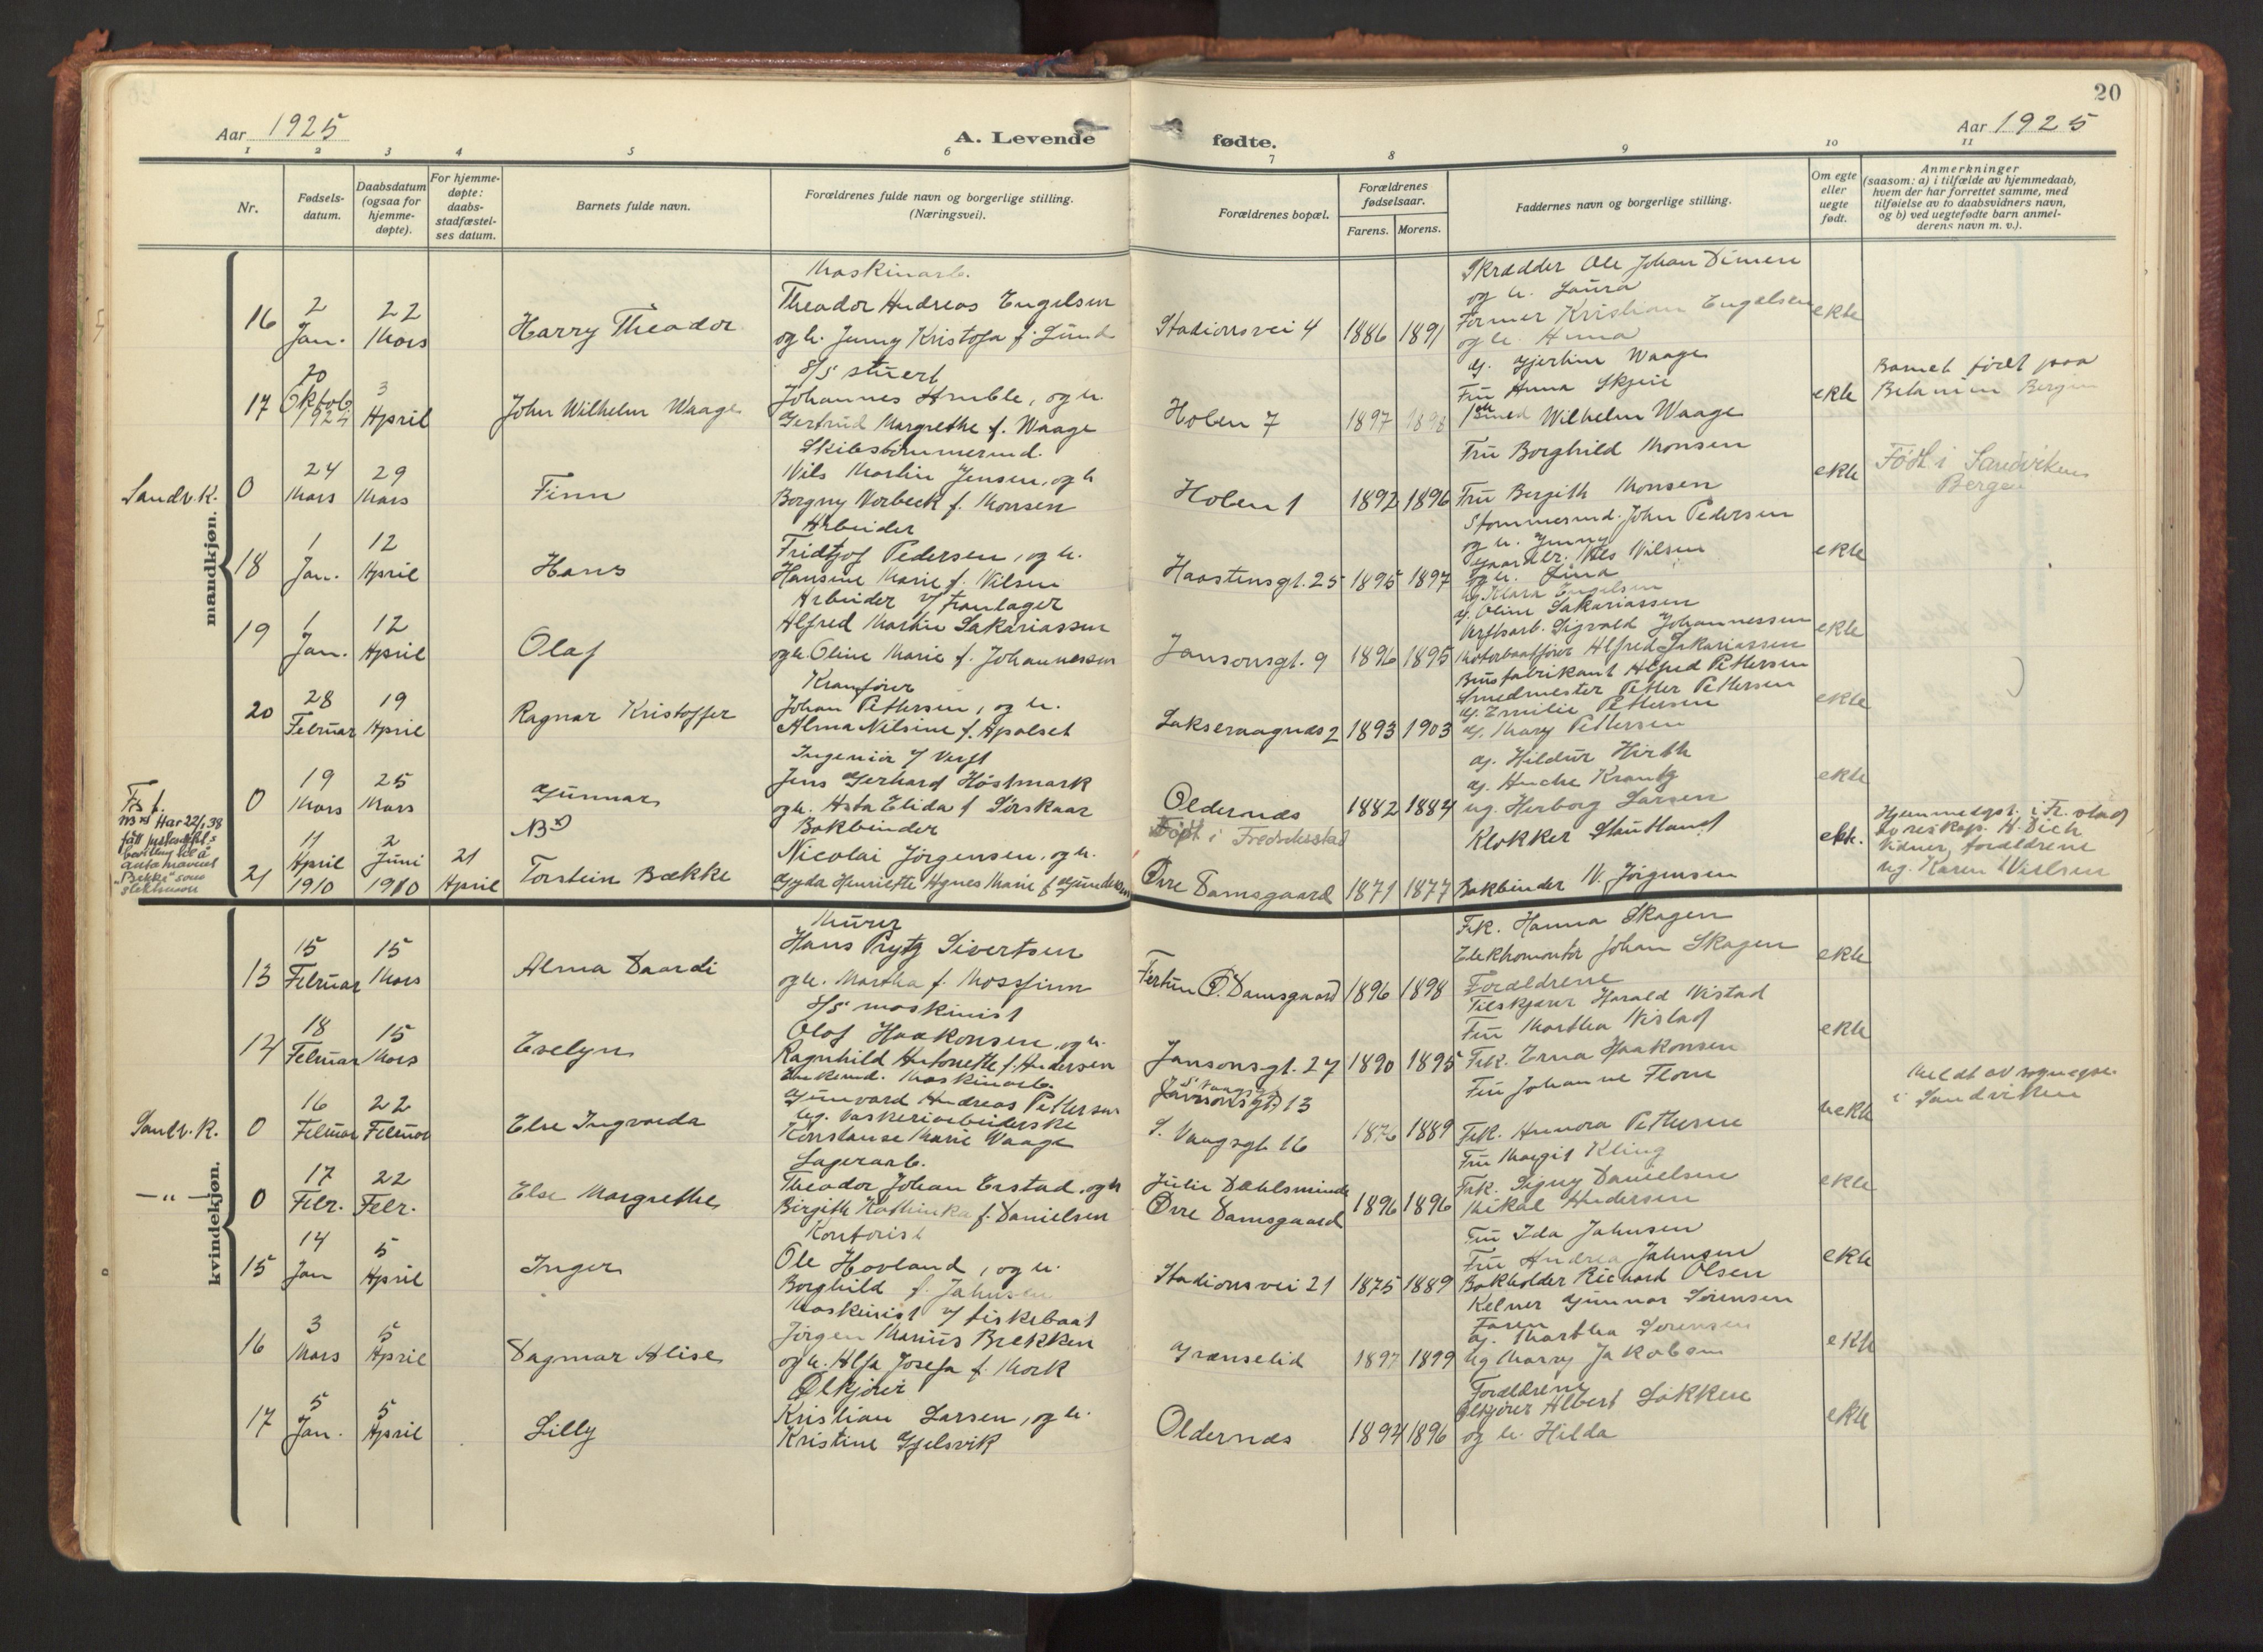 20
Aar 1925
A. Levende
fødte.
Aar 1925
1 2 3 4 5 6 7 8 9 10 11
Nr.
Fødsels-
datum.
Daabsdatum
(ogsaa for
hjemme-
døpte).
For hjemme-
døpte:
daabs-
stadfæstel-
ses datum.
Barnets fulde navn.
Forældrenes fulde navn og borgerlige stilling.
(Næringsvei).
Forældrenes bopæl.
Forældrenes
fødselsaar.
Farens. Morens.
Faddernes navn og borgerlige stilling.
Om egte
eller
uegte
født.
Anmerkninger
(saasom: a) i tilfælde av hjemmedaab,
hvem der har forrettet samme, med
tilføielse av to daabsvidners navn,
og b) ved uegtefødte barn anmel-
derens navn m. v.).
mandkjøn.
16
2
Jan.
22
Mars
Harry Theodor
Maskinarb.
Theodor Andreas Engelsen
og h. Jenny Kristofa f. Lund
Stadionsvei 4
1886 1891
Skrædder Ole Johan Dimen
og h. Laura
Former Kristian Engelsen
og h. Anna
ekte
17
20
Oktob
1924
3
April
John Wilhelm Waage
S/S stuert
Johannes Amble, og h.
Gertrud Margrethe f. Waage
Holen 7
1897 1898
Gjertine Waage
Fru Anna Skjeie
Wilhelm Waage
ekte
Barnet født paa
Betanien Bergen
Sandv. K.
0
24
Mars
29
Mars
Finn
Skibstømmermd.
Nils Martin Jensen, og h
Borgny Vorbeck f. Monsen
Holen 1
1892 1896
Fru Borghild Monsen
Fru Bergith Monsen
ekte
Født i Sandviken
Bergen
18
1
Jan.
12
April
Hans
Arbeider
Fridtjof Pedersen, og h.
Hansine Marie f. Nilsen
Haastensgt. 25
1895 1897
Tømmermd. John Pedersen
og h. Jenny
Nils Nilsen
og h. Lina
ekte
19
1
Jan.
12
April
Olaf
Arbeider v/ tranlager
Alfred Martin Sakariassen
og h. Oline Marie f. Johannessen
Jansonsgt. 9
1896 1895
Ug. Klara Engelsen
Oline Sakariassen
Verftsarb. Sigvald Johannessen
Motorbaatfører Alfred Sakariassen
ekte
20
28
Februar
19
April
Ragnar Kristoffer
Kranfører
Johan Pettersen, og h.
Alma Nilsine f. Apalset
Laksevaagnes 2
1893 1903
Brusfabrikant Alfred Pettersen
Smedmester Petter Pettersen
Emilie Pettersen
Mary Pettersen
ekte
0
19
Mars
25
Mars
Gunnar
Ingeniør v/ Verft
Jens Gerhard Høstmark
og h. Asta Elida f Sørskaar
Oldernes
1882 1884
Hildur Hirth
Anche Krantz
ug. Herborg Larsen
ekte
Har 22/1 38
fått justisdepts
bevilling til å
anta navnet
"Bekke" som
slektsnavn
21
11
April
1910
2
Juni
1910
21
April
NB
Torstein Bække
Bokbinder
Nicolai Jørgensen, og h.
Gyda Henriette Agnes Marie f Gundersen
Født i Fredrikstad
Øvre Damsgaard
1871 1877
Klokker Stautland
Bokbinder N. Jørgensen
ekte.
Hjemmedøpt i Fr. stad
av reskap. H. Dick
Vidner, forældrene
ug. Karen Nielsen
kvindekjøn.
13
15
Februar
15
Mars
Alma Daardi
Murer
Hans Prytz Sivertsen
og h. Martha f. Mossfinn
Fertun Ø. Damsgaard
1896 1898
Frk. Hanna Skagen
Elektromontør Johan Skagen
Forældrene
ekte
14
18
Februar
15
Mars
Evelyn
S/S maskinist
Olaf Haakonsen, og h.
Ragnhild Antonette f. Andersen
Jansonsgt. 27
1890 1895
Tilskjærer Harald Nistad
Fru Martha Nistad
Frk. Erna Haakonsen
ekte
Sandv. K.
0
16
Februar
22
Februar
Else Ingvarda
Enkemd. Maskinarb.
Gunvard Andreas Pettersen
Ug. Vaskeriarbeiderske
Konstanse Marie Waage
13
S. Vaagsgt. 16
1876 1889
Fru Johanne Flom
Frk. Annora Pettersen
uekte
Meldt av sognepr.
i Sandviken
— " —
0
17
Febr.
22
Febr.
Else Margrethe
Lagerarb.
Theodor Johan Erstad, og h
Birgith Kathinka f. Danielsen
Julie Dahlsminde
Øvre Damsgaard
1896 1896
Fru Margit Kling
Frk. Signy Danielsen
Mikal Andersen
ekte
15
14
Jan
5
April
Inger
Kontorist
Ole Hovland, og h.
Borghild f. Jahnsen
Stadionsvei 21
1875 1889
Fru Ida Jahnsen
Fru Andrea Jahnsen
Bokholder Richard Olsen
ekte
16
3
Mars
5
April
Dagmar Alise
Maskinist v/ fiskebaat
Jørgen Marius Brekken
og h. Alfa Josefa f. Mork
Grænselid
1897 1899
Kelner Gunnar Sørensen
Faren
Martha Sørensen
Ug Marry Jakobsen
ekte
17
5
Jan.
5
April
Lilly
Ølkjører
Kristian Larsen, og h.
Kristine Gjelsvik
Oldernes
1894 1896
Forældrene
Ølkjører Albert Løkken
og h. Hilda
ekte